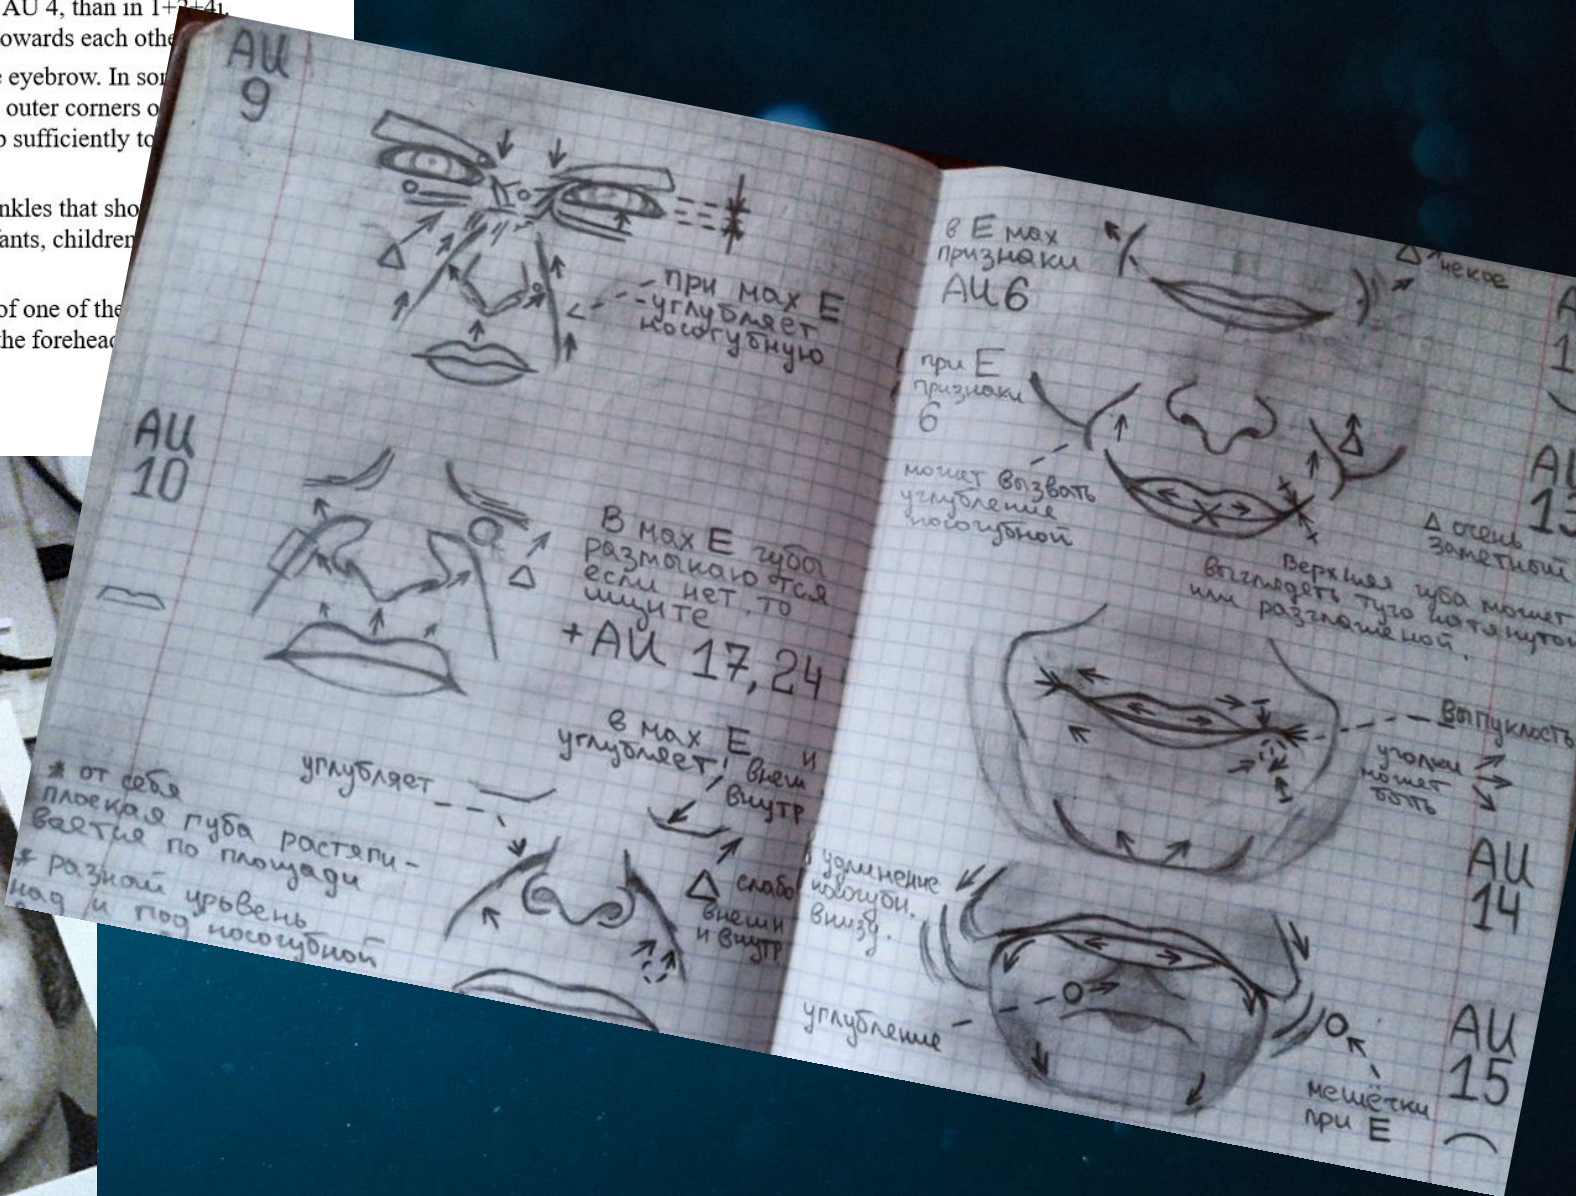 AU 4, than in 1+2+4i.
owards each othe
e eyebrow. In sor
outer corners o
p sufficiently to
nkles that sho
ants, children
of one of the
the forehead
AU
9
при мах Е
углубляет
носогубную
AU
10
В мах Е губы
размыкаются
если нет, то
ищите
+AU 17, 24
в мах Е
углубляет
и
внеш
внутр
углубляет
* от себя
плоская губа растяги-
вается по площади
* разный уровень
над и под носогубной
Δ слабо
внешн
и внутр
в Е мах
признаки
AU6
Δ
некое
A
1
при Е
признаки
6
может вызвать
углубление
носогубной
Δ
AU
13
Δ очень
заметный
Верхняя губа может
выглядеть туго натянутой
или разглаженой.
Выпуклость
уголки
может
быть
AU
14
удлинение
носогубн.
внизу.
углубление
AU
15
мешёчки
при Е